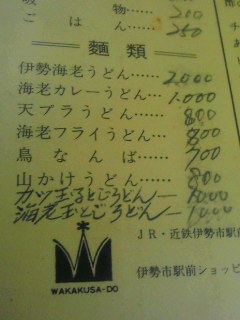 物…… 200
ごはん…… 250
麺類
伊勢海老うどん…… 2,000
海老カレーうどん… 1,000
天プラうどん…… 800
海老フライうどん… 800
鳥なんば…… 700
山かけうどん…… 800
カツ玉とじうどん— 1000
海老玉とじうどん— 1000
WAKAKUSA-DO
JR・近鉄伊勢市駅前
伊勢市駅前ショッピ